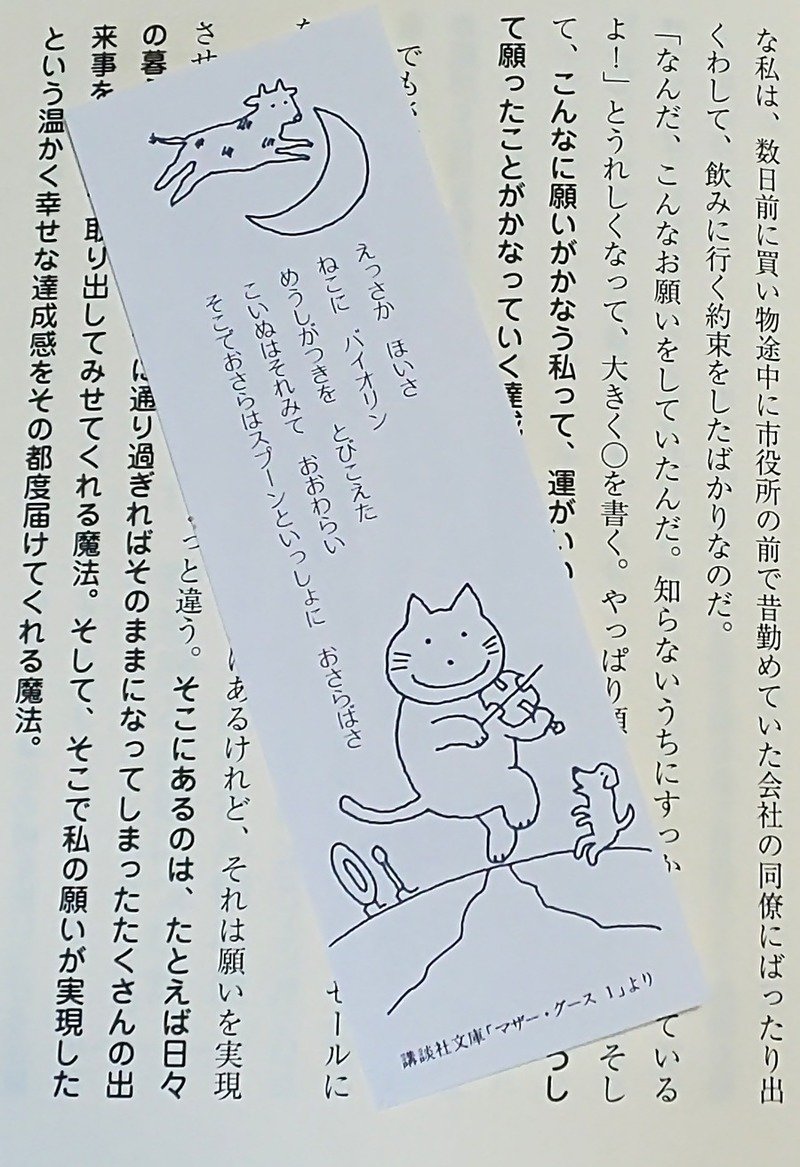 な私は、数日前に買い物途中に市役所の前で昔勤めていた会社の同僚にばったり出
くわして、飲みに行く約束をしたばかりなのだ。
「なんだ、こんなお願いをしていたんだ。知らないうちにすっか ている
よ！」とうれしくなって、大きく〇を書く。やっぱり願 そし
て、こんなに願いがかなう私って、運がいい つし
て願ったことがかなっていく達成
でも
ールに
あるけれど、それは願いを実現
させ っと違う。そこにあるのは、たとえば日々
の暮 に通り過ぎればそのままになってしまったたくさんの出
来事を 取り出してみせてくれる魔法。そして、そこで私の願いが実現した
という温かく幸せな達成感をその都度届けてくれる魔法。
えっさか ほいさ
ねこに バイオリン
めうしがつきを とびこえた
こいぬはそれみて おおわらい
そこでおさらはスプーンといっしょに おさらばさ
講談社文庫「マザー・グース 1」より